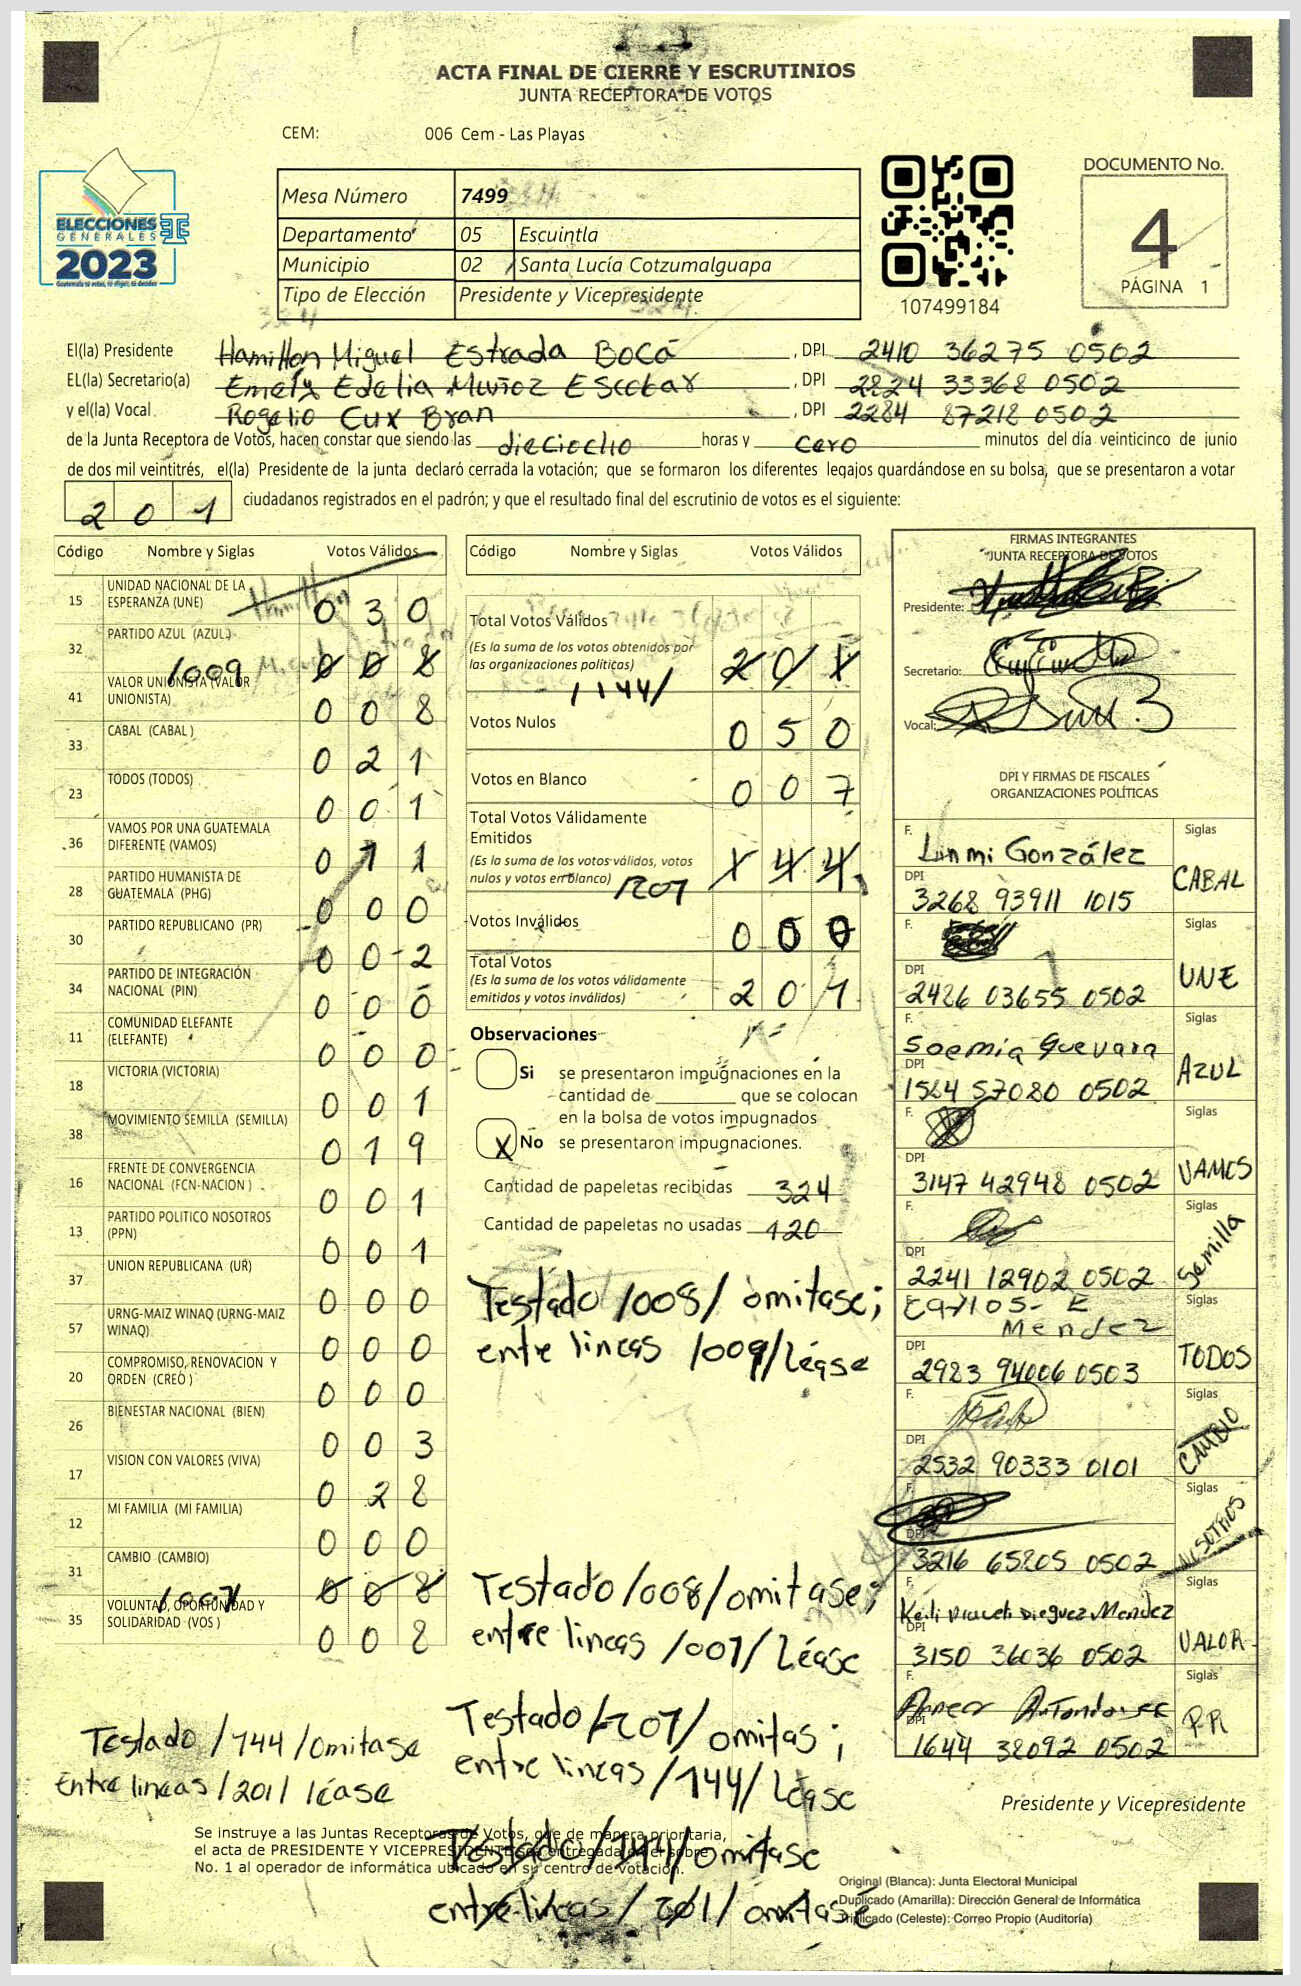 ACTA FINAL DE CIERRE Y ESCRUTINIOS
JUNTA RECEPTORA DE VOTOS
CEM: 006 Cem - Las Playas
ELECCIONES
GENERALES
2023
Guatemala tú votas, tú eliges, tú decides
Mesa Número 7499
Departamento 05 Escuintla
Municipio 02 Santa Lucía Cotzumalguapa
Tipo de Elección Presidente y Vicepresidente
107499184
DOCUMENTO No.
4
PÁGINA 1
El(la) Presidente Hamilton Miguel Estrada Bocá , DPI 2410 36275 0502
EL(la) Secretario(a) Emely Edelia Muñoz Escobar , DPI 2824 33368 0502
y el(la) Vocal Rogelio Cux Bran , DPI 2284 87218 0502
de la Junta Receptora de Votos, hacen constar que siendo las dieciocho horas y cero minutos del día veinticinco de junio
de dos mil veintitrés, el(la) Presidente de la junta declaró cerrada la votación; que se formaron los diferentes legajos quardándose en su bolsa, que se presentaron a votar
201 ciudadanos registrados en el padrón; y que el resultado final del escrutinio de votos es el siguiente:
Código Nombre y Siglas Votos Válidos
15 UNIDAD NACIONAL DE LA ESPERANZA (UNE) 0 3 0
32 PARTIDO AZUL (AZUL) /009 0 0 8
41 VALOR UNIONISTA (VALOR UNIONISTA) 0 0 8
33 CABAL (CABAL ) 0 2 1
23 TODOS (TODOS) 0 0 1
36 VAMOS POR UNA GUATEMALA DIFERENTE (VAMOS) 0 1 1
28 PARTIDO HUMANISTA DE GUATEMALA (PHG) 0 0 0
30 PARTIDO REPUBLICANO (PR) 0 0 2
34 PARTIDO DE INTEGRACIÓN NACIONAL (PIN) 0 0 0
11 COMUNIDAD ELEFANTE (ELEFANTE) 0 0 0
18 VICTORIA (VICTORIA) 0 0 1
38 MOVIMIENTO SEMILLA (SEMILLA) 0 1 9
16 FRENTE DE CONVERGENCIA NACIONAL (FCN-NACION ) 0 0 1
13 PARTIDO POLITICO NOSOTROS (PPN) 0 0 1
37 UNION REPUBLICANA (UR) 0 0 0
57 URNG-MAIZ WINAQ (URNG-MAIZ WINAQ) 0 0 0
20 COMPROMISO, RENOVACION Y ORDEN (CREO ) 0 0 0
26 BIENESTAR NACIONAL (BIEN) 0 0 3
17 VISION CON VALORES (VIVA) 0 2 8
12 MI FAMILIA (MI FAMILIA) 0 0 0
31 CAMBIO (CAMBIO) /007/ 0 0 8
35 VOLUNTAD, OPORTUNIDAD Y SOLIDARIDAD (VOS ) 0 0 8
Código Nombre y Siglas Votos Válidos
Total Votos Válidos 2 0 1
(Es la suma de los votos obtenidos por
las organizaciones políticas)
/144/
Votos Nulos 0 5 0
Votos en Blanco 0 0 7
Total Votos Válidamente
Emitidos
(Es la suma de los votos válidos, votos
nulos y votos en blanco) /207 1 4 4
Votos Inválidos 0 0 0
Total Votos
(Es la suma de los votos válidamente
emitidos y votos inválidos) 2 0 1
Observaciones
Si se presentaron impugnaciones en la
cantidad de ________ que se colocan
en la bolsa de votos impugnados
X No se presentaron impugnaciones.
Cantidad de papeletas recibidas 324
Cantidad de papeletas no usadas 120
Testado /008/ omitase;
entre lineas /009/Léase
Testado /008/omitase;
entre lineas /007/ Léase
Testado /207/ omitas;
entre lineas /144/ Léase
Testado /144/omitase
entre lineas / 201/ omitase
Testado /144/Omitase
Entre lineas /201/ léase
FIRMAS INTEGRANTES
JUNTA RECEPTORA DE VOTOS
Presidente:
Secretario:
Vocal:
DPI Y FIRMAS DE FISCALES
ORGANIZACIONES POLÍTICAS
F. González Siglas
DPI 3268 93911 1015 CABAL
F. Siglas
DPI 2426 03655 0502 UNE
F. Soemia Guevara Siglas
DPI 1564 57080 0502 AZUL
F. Siglas
DPI 3147 42948 0502 VAMOS
F. Siglas
DPI 2241 12902 0502 Semilla
F. Mendez Siglas
DPI 2983 94006 0503 TODOS
F. Siglas
DPI 2532 90333 0101 CAMBIO
F. Siglas
DPI 3216 65805 0502 NOSOTROS
F. Dieguez Mendez Siglas
DPI 3150 36036 0502 VALOR
F. Siglas
DPI 1644 38092 0502 P.R
Presidente y Vicepresidente
Se instruye a las Juntas Receptoras de Votos, que de manera prioritaria,
el acta de PRESIDENTE Y VICEPRESIDENTE sea entregada en el sobre
No. 1 al operador de informática ubicado en su centro de votación.
Original (Blanca): Junta Electoral Municipal
Duplicado (Amarilla): Dirección General de Informática
Triplicado (Celeste): Correo Propio (Auditoría)